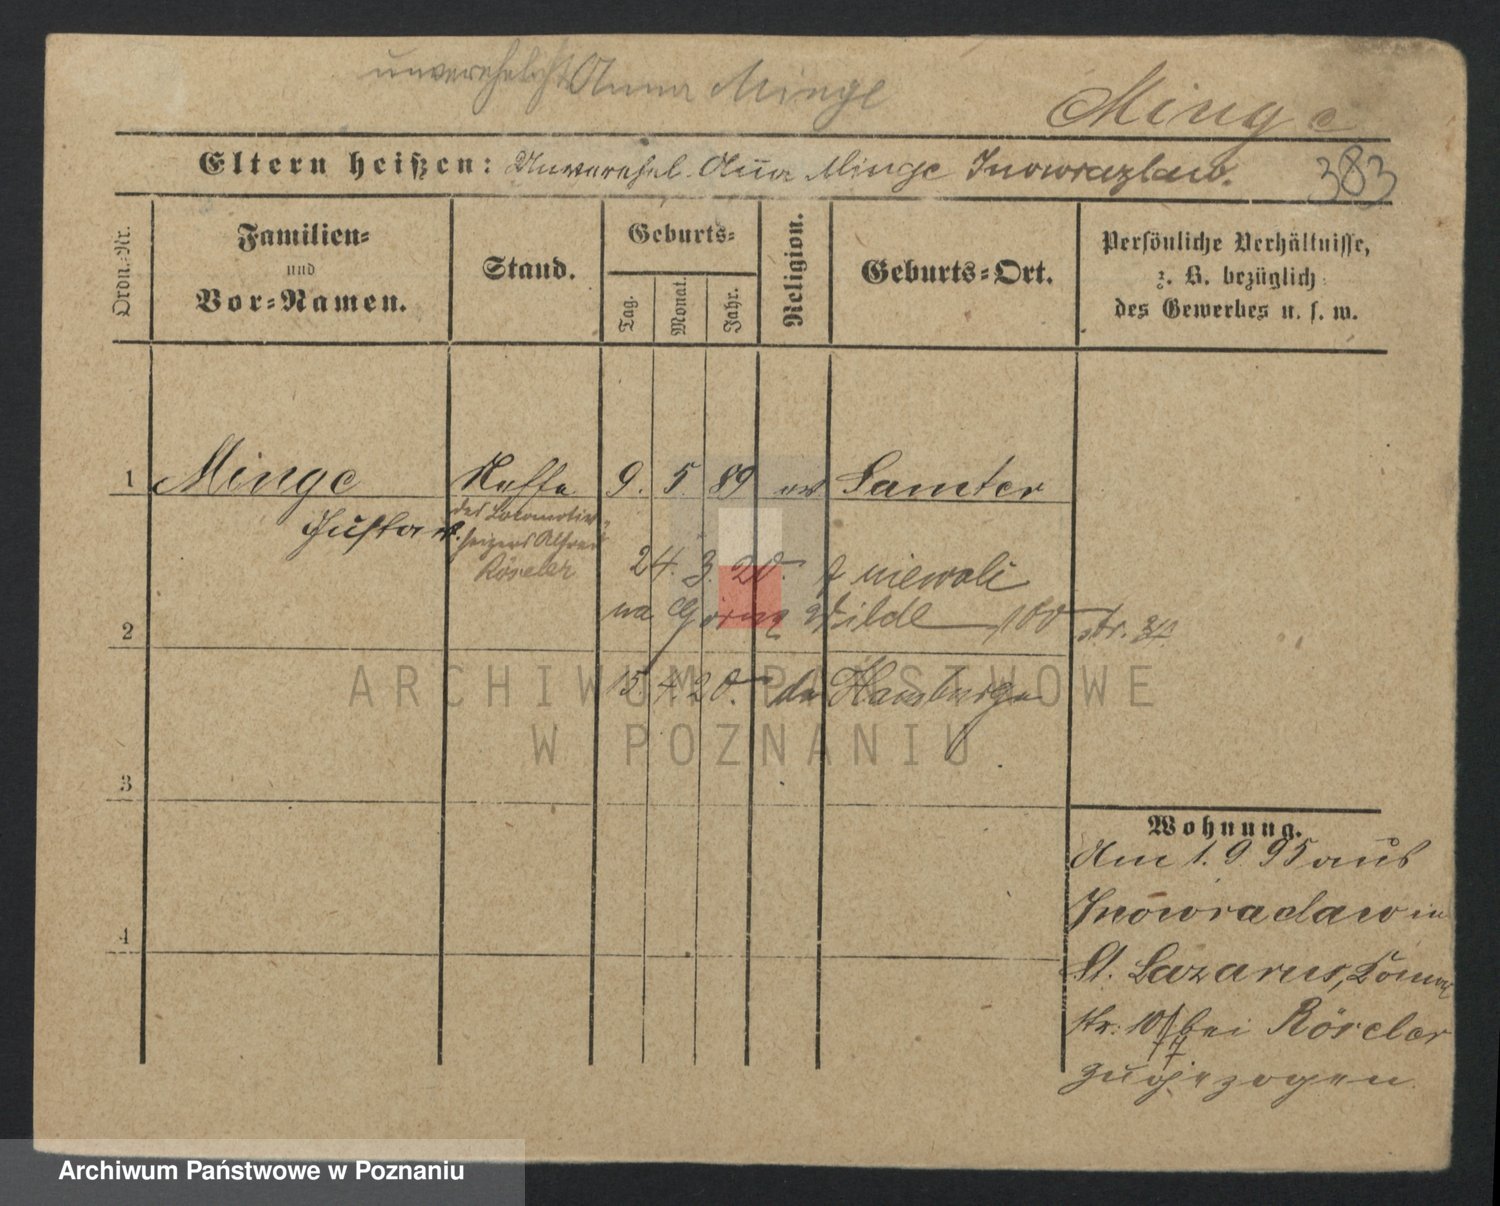 unverehelicht Anna Minge
Minge
Eltern heißen: Unverehel. Anna Minge Inowrazlaw.
383
Ordn.-Nr.
Familien-
und
Vor-Namen.
Stand.
Geburts-
Tag.
Monat.
Jahr.
Religion.
Geburts-Ort.
Persönliche Verhältnisse,
z. B. bezüglich
des Gewerbes u. s. w.
1 Minge Neffe 9. 5. 89 ev Samter
Gustav.
des Locomotiv-
heizers Alfred
Röseler
24. 3. 20. z niewoli
2
na Górną Wilde 100
str.
15. 4. 20. do Hamburga
3
4
Wohnung.
Am 1. 9. 95 aus
Inowraclaw in
St. Lazarus,
str. 10 bei Röseler
zugezogen
ARCHIWUM PAŃSTWOWE
W POZNANIU
Archiwum Państwowe w Poznaniu